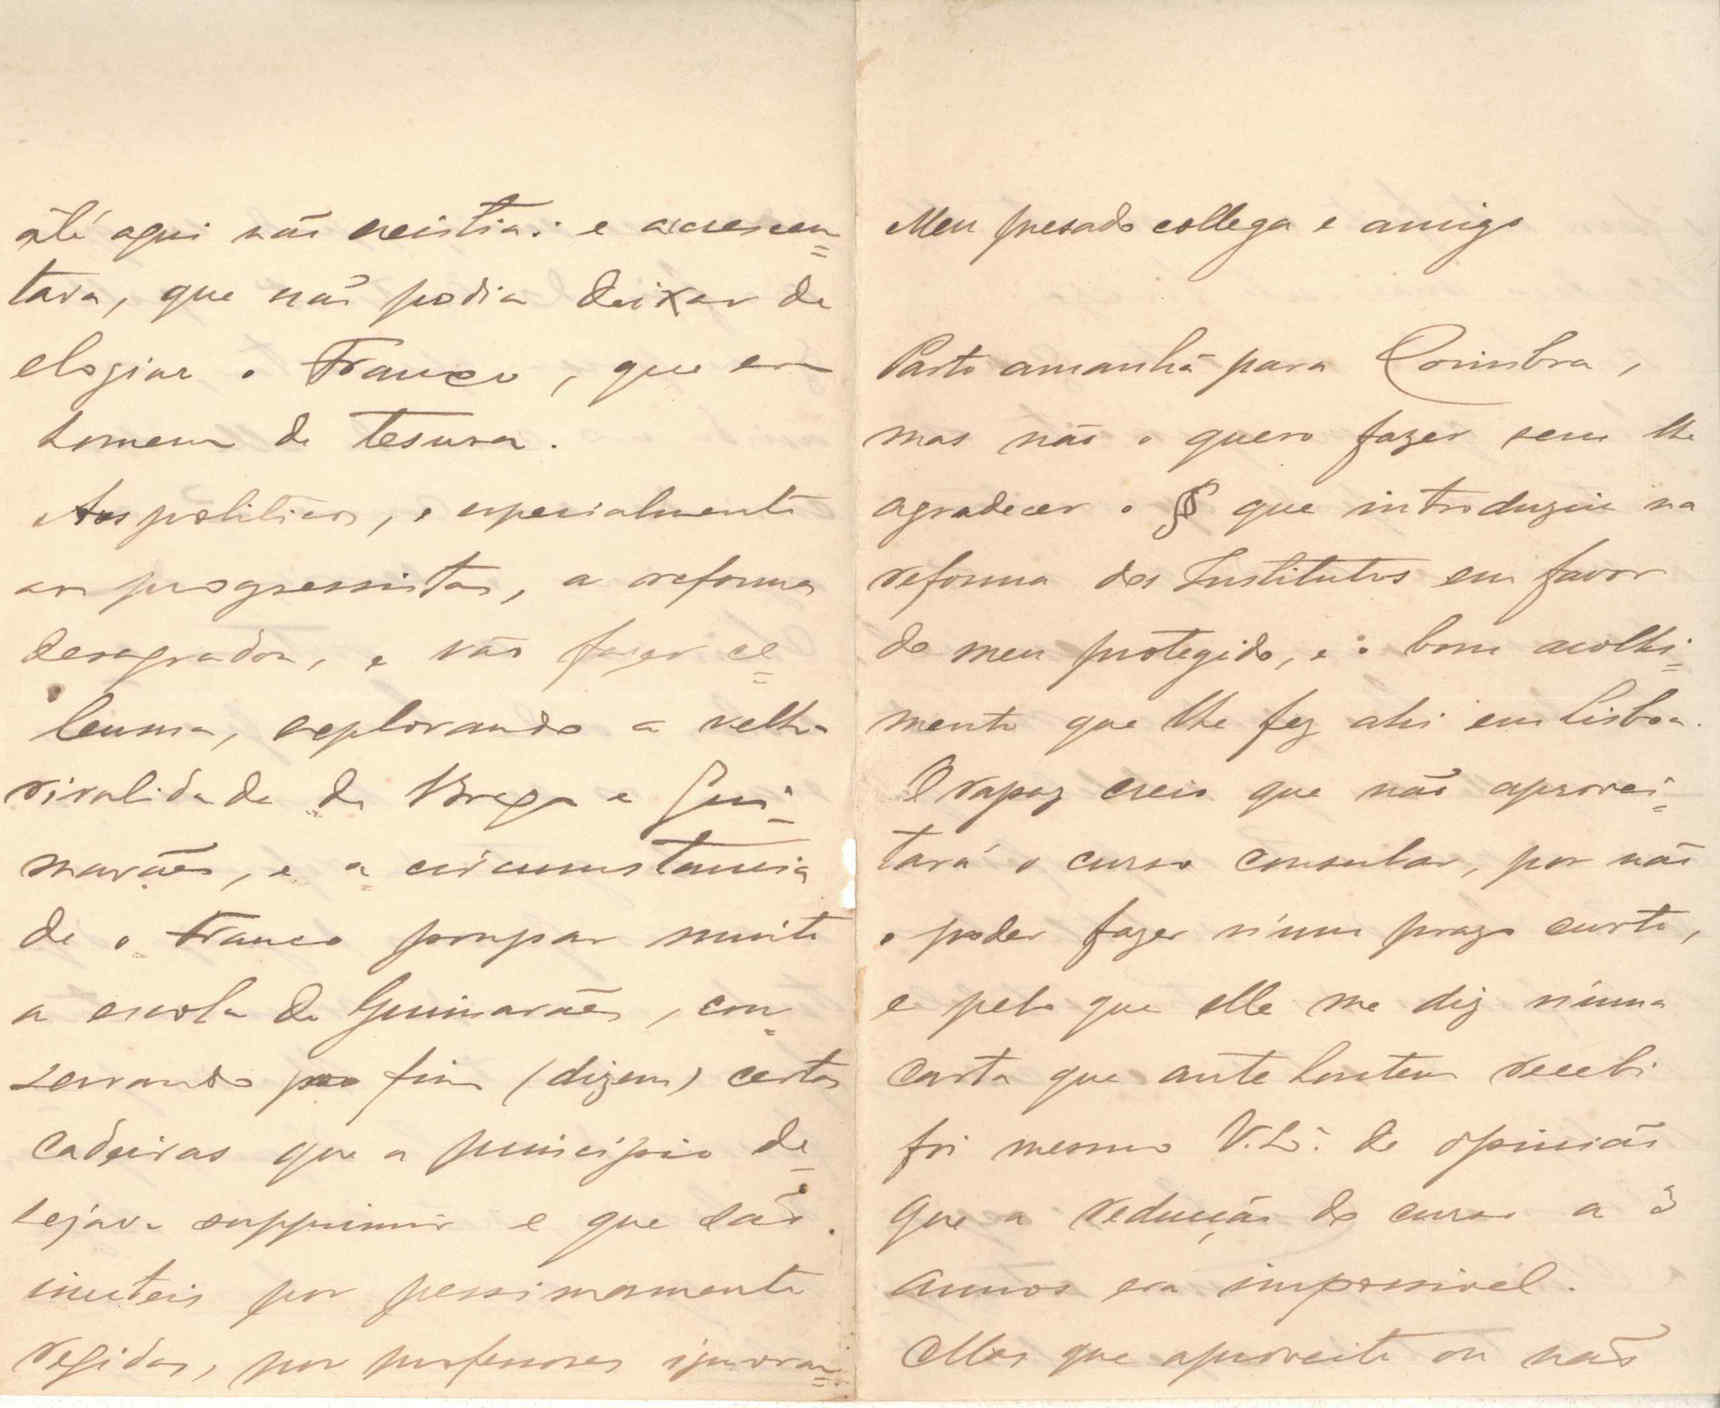 Meu presado collega e amigo
Parto amanhã para Coimbra,
mas não o quero fazer sem lhe
agradecer o § que introduziu na
reforma dos Institutos em favor
do meu protegido, e o bom acolhi=
mento que lhe fez ahi em Lisboa.
O rapaz creio que não aprovei=
tará o curso consular, por não
o poder fazer n'um prazo curto,
e pelo que elle me diz n'uma
carta que ante hontem recebi
foi mesmo V. de opinião
que a reducção do curso a 3
annos era impossivel.
Mas que aproveite ou não
até aqui não existia: e accrescen=
tava, que não podia deixar de
elogiar o Franco, que era
homem de tesura.
Aos politicos, e especialmente
aos progressistas, a reforma
desagradou, e vão fazer ce=
leuma, explorando a velha
rivalidade de Braga e Gui=
marães, e a circumstancia
de o Franco poupar muito
a escola de Guimarães, con=
servando por fim (dizem) certas
cadeiras que a principio de=
sejava supprimir e que são
inuteis por pessimamente
regidas, por professores ignoran=